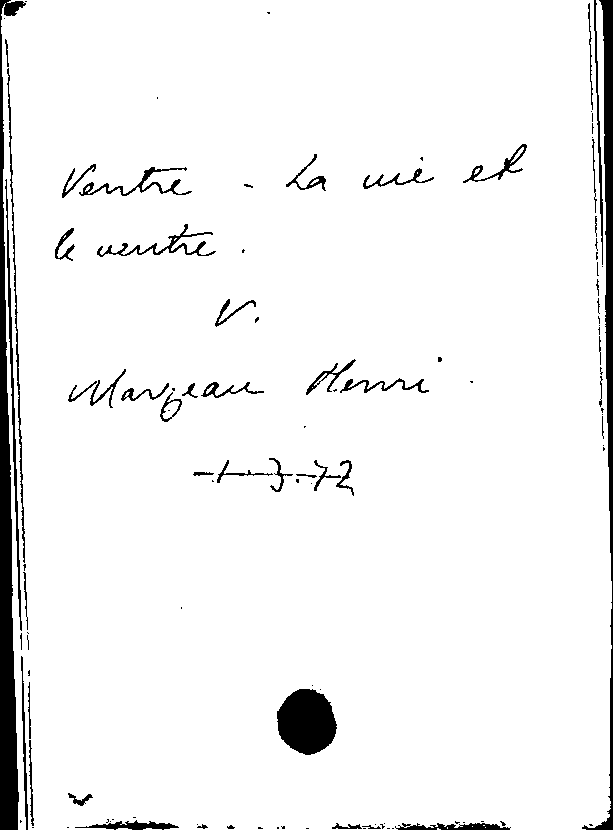 Ventre - La vie et
le ventre.
V.
Marzeau Henri.
1.3.72